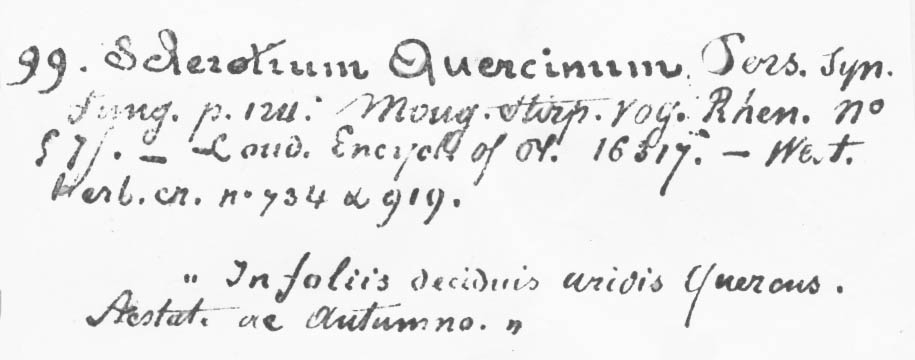 99. Sclerotium Quercinum, Pers. Syn.
Fung. p. 124: Moug. Stirp. Vog. Rhen. no
571. – Loud. Encycl. of Pl. 16517. – West.
Herb. cr. no 734 & 919.
" In foliis deciduis aridis Quercus.
Aestate ac Autumno. "